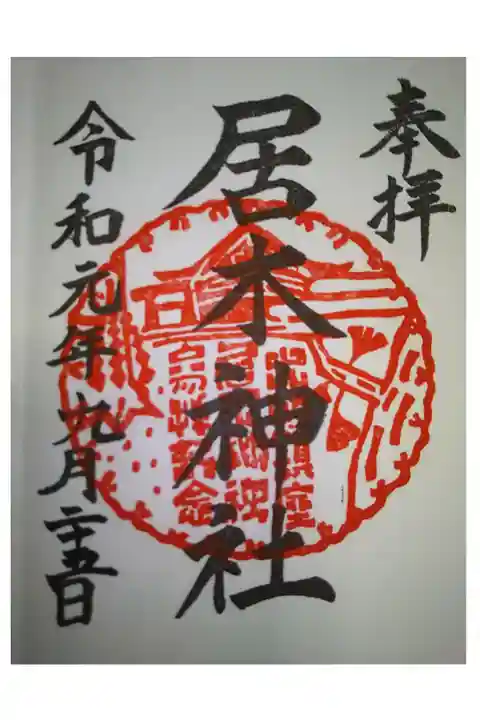 奉拝
居木神社
令和元年九月二十五日